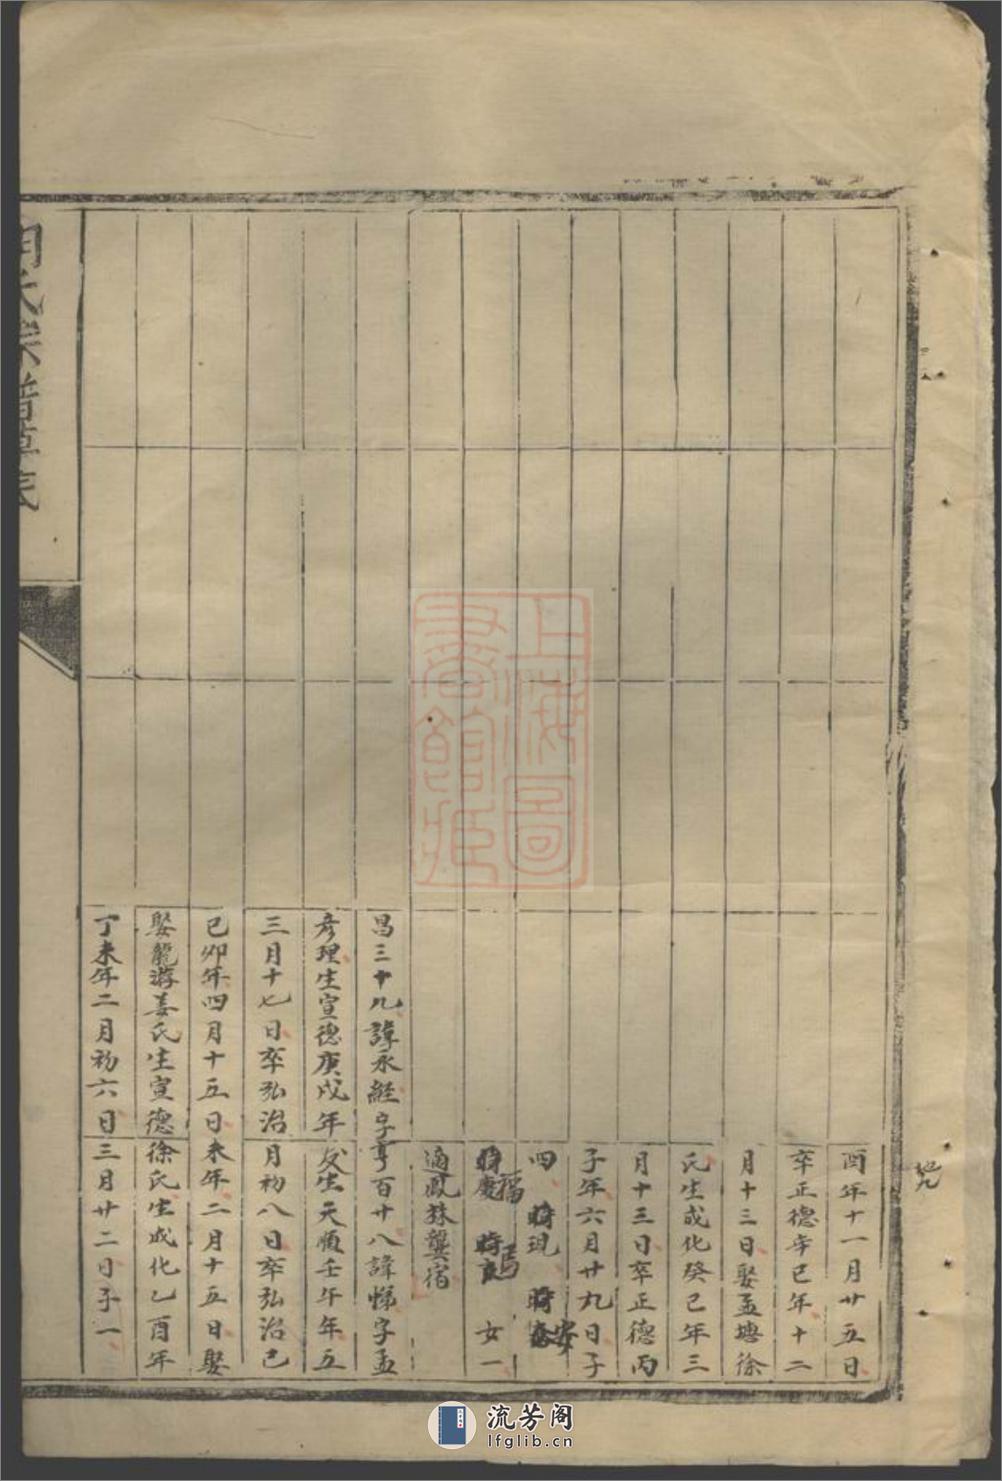 酉年十一月廿五日
卒正德辛巳年十二
月十三日娶孟塘徐
氏生成化癸巳年三
月十三日卒正德丙
子年六月廿九日子
四 時現 時泰 安
時慶 福 時良 馬 女一
適鳳林龔宿
昌三十九諱永經字
彦理生宣德庚戌年
三月十七日卒弘治
己卯年四月十五日
娶龍游姜氏生宣德
丁未年二月初六日
亨百廿八諱悌字孟
友生天順壬午年五
月初八日卒弘治己
未年二月十五日娶
徐氏生成化乙酉年
三月廿二日子一
氏宗譜
地九
上海圖
書館藏
流芳阁
lfglib.cn